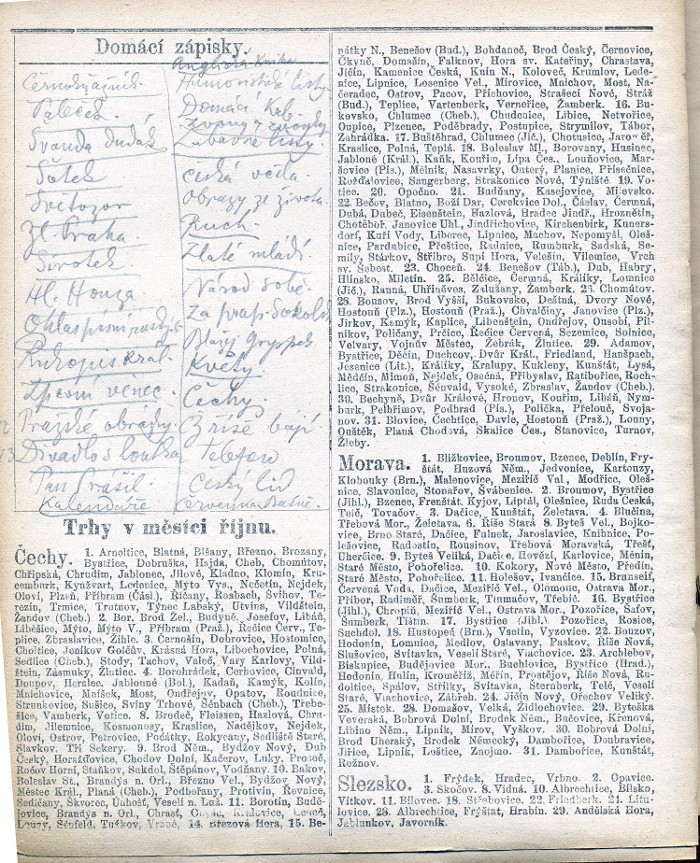 Domácí zápisky.
Anglická Kniha
Humoristické listy
Paleček. Domácí Kap.
Švanda dudák Zábavné listy
Šotek česká věda.
Světozor Obrazy ze života
Zl. Praha Ruch.
Sirotek Zlaté mládí
Hl. Honza Národ sobě
Ohlas písní Za prap. sokol
Rukopis král. Květy
Zpěvní věnec. Čechy
Pražské obrázky. Z říše bájí
Divadlo s loutka Telefon
Pan Prášil. Český lid
Kalendáře
Trhy v měsíci říjnu.
Čechy. 1. Arnoltice, Blatná, Blšany, Březno, Brozany,
Bystřice, Dobruška, Hajda, Cheb, Chomútov,
Chřipská, Chrudim, Jablonec, Jílové, Kladno, Klomín, Kru-
cemburk, Kynžvart, Ledenice, Mýto Vys., Nečetín, Nejdek,
Oloví, Plzeň, Příbram (Čási.), Říčany, Rosbach, Švihov, Te-
rezín, Trmice, Trutnov, Týnec Labský, Utvina, Vildštein,
Žandov (Cheb.) 2. Bor, Brod Žel., Budyně, Josefov, Libáň,
Liběšice, Mýto, Mýto V., Příbram (Praž.), Řečice Červ., Te-
plice, Zbraslavice, Žihle. 3. Černošín, Dobrovice, Hostomice,
Choltice, Joníkov Golčův, Krásná Hora, Libochovice, Polná,
Sedlice (Cheb.), Stody, Tachov, Valeč, Vary Karlovy, Vild-
štein, Zásmuky, Žlutice. 4. Borohrádek, Cerhovice, Cinvald,
Doupov, Herálec, Jablonné (Bol.), Kadaň, Kamýk, Kolín,
Mnichovice, Mníšek, Most, Ondřejov, Opatov, Roudnice,
Strenkovice, Sušice, Sviny Trhové, Šénbach (Cheb.), Třebe-
šice, Vamberk, Votice. 8. Brodec, Floissen, Hazlová, Chra-
dim, Jilemnice, Kosmonosy, Kraslice, Nadějkov, Nejdek,
Oloví, Ostrov, Petrovice, Počátky, Rokycany, Sedliště Staré,
Slavkov. Tři Sekery. 9. Brod Něm., Bydžov Nový, Dub
Český, Horažďovice, Chodov Dolní, Kačerov, Luky, Proseč,
Ročov Horní, Staňkov, Sukdol, Štěpánov, Vodňany. 10. Bakov,
Boleslav St., Brandýs n. Orl., Březno Vel., Bydžov Nový,
Městec Král., Planá (Cheb.), Podbořany, Protivín, Řevnice,
Sedlčany, Skvorec, Úahošť, Veselí n. Luž. 11. Borotín, Budě-
jovice, Brandýs n. Orl., Chrast, Královice,
Louny, Šénfeld, Tuškov, Vrané, 14. Březová Hora, 15. Be-
nátky N., Benešov (Bud.), Bohdaneč, Brod Český, Černovice,
Čkyně, Domašín, Falknov, Hora sv. Kateřiny, Chrastava,
Jičín, Kamenice Česká, Knín N., Koloveč, Krumlov, Lede-
nice, Lipnice, Losenice Vel., Mirovice, Mnichov, Most, Na-
čeradec, Ostrov, Pacov, Příchovice, Strašecí Nové, Stráž
(Bud.), Teplice, Vartenberk, Verneřice, Žamberk. 16. Bu-
kovsko, Chlumec (Cheb.), Chudenice, Libice, Netvořice,
Oupice, Plzenec, Poděbrady, Postupice, Strymilov, Tábor,
Zahrádka. 17. Buštěhrad, Chlumec (Jič.), Lhotusice, Jaroměř,
Kraslice, Polná, Teplá. 18. Boleslav Ml., Borovany, Husinec,
Jabloné (Král.), Kaňk, Kouřim, Lípa Čes., Louňovice, Mar-
šovice (Pís.), Mělník, Nasavrky, Outerý, Planice, Písečnice,
Rožďalovice, Sangerberg, Strakonice Nové, Týniště. 19. Vo-
tice. 20. Opočno. 21. Budňany, Kasejovice, Milevsko.
22. Bečov, Blatno, Boží Dar, Cerekvice Dol., Čáslav, Čermná,
Dubá, Dubeč, Eisenštein, Hazlová, Hradec Jindř., Hroznětín,
Chotěboř, Janovice Uhl., Jindřichovice, Kirchenbirk, Kuners-
dorf, Kuří Vody, Liberec, Lipnice, Machov, Nepomyšl, Oleš-
nice, Pardubice, Přeštice, Radnice, Rumburk, Sadská, Se-
mily, Stárkov, Stříbro, Supí Hora, Velešín, Vilemice, Vrch
sv. Šebest. 23. Choceň. 24. Benešov (Táb.), Dub, Habry,
Hlinsko, Miletín. 25. Bělčice, Čermná, Králíky, Lomnice
(Jič.), Ranná, Uhříněves, Zalužany, Žamberk. 26. Chomútov.
28. Bousov, Brod Vyšší, Bukovsko, Deštná, Dvory Nové,
Hostouň (Plz.), Hostouň (Praž.), Chvalčiny, Janovice (Plz.),
Jirkov, Kamýk, Kaplice, Libenštein, Ondřejov, Ousobí, Pil-
níkov, Poličany, Prčice, Řečice Červená, Sezemice, Solnice,
Velvary, Vojnův Městec, Žebrák, Žlutice. 29. Adamov,
Bystřice, Děčín, Duchcov, Dvůr Král., Friedland, Hanšpach,
Jesenice (Lit.), Králíky, Kralupy, Kukleny, Kunštát, Lysá,
Měděin, Mimoň, Nejdek, Osečná, Přibyslav, Ratibořice, Roch-
lice, Strakovice, Šénvald, Vysoké, Zbraslav, Žandov (Cheb.).
30. Bechyně, Dvůr Králové, Hronov, Kouřim, Libáň, Nym-
burk, Pelhřimov, Podhrad (Pís.), Polička, Přelouč, Svoja-
nov. 31. Blovice, Čechtice, Davle, Hostouň (Praž.), Louny,
Ouštěk, Planá Chodová, Skalice Čes., Stanovice, Turnov,
Žleby.
Morava. 1. Blížkovice, Broumov, Bzenec, Deblín, Fry-
štát, Huzová Něm., Jedvonice, Kartouzy,
Klobouky (Brn.), Malenovice, Meziříč Val., Modřice, Oleš-
nice, Slavonice, Stonařov, Švábenice. 2. Broumov, Bystřice
(Jihl.), Bzenec, Frenštát, Kyjov, Liptál, Olešnice, Ruda Česká,
Telč, Tovačov. 3. Dačice, Kunštát, Želetava. 4. Blučina,
Třebová Mor., Želetava. 6. Říše Stará 8. Byteš Vel., Bojko-
vice, Brno Staré, Dačice, Fulnek, Jaroslavice, Knihnice, Po-
lešovice, Radostín, Rousinov, Třebová Moravská, Třešť,
Uherčice. 9. Byteš Veliká, Dačice, Hovězí, Karlovice, Měnín,
Staré Město, Pohořelice. 10. Kokory, Nové Město, Předín,
Staré Město, Pohořelice. 11. Holešov, Ivančice. 15. Brunseif,
Červená Voda, Dačice, Meziříč Vel., Olomouc, Ostrova Mor.,
Příbor, Radiměř, Šumberk, Tlumačov, Třebíč. 16. Bystřice
(Jihl.), Chropíň, Meziříč Vel., Ostrava Mor., Pozořice, Šafov,
Šumberk, Tištín. 17. Bystřice (Jihl.) Pozořice, Rosice,
Suchdol. 18. Hustopeč (Brn.), Vsetín, Vyzovice. 22. Bouzov,
Hodonín, Lomnice, Medlov, Oslavany, Paskov, Říše Nová,
Slušovice, Svitávka, Veselí Staré, Vlachovice. 23. Archlebov,
Biskupice, Budějovice Mor., Buchlovice, Bystřice (Hrad.),
Hodonín, Hulín, Kroměříž, Měřín, Prostějov, Říše Nová, Ru-
doltice, Spálov, Stříliky, Svitávka, Šternberk, Telč, Veselí
Staré, Vlachovice, Zábřeh. 24. Jičín Nový, Ořechov Veliký.
25. Místek. 28. Domašov, Velká, Židlochovice. 29. Byteška
Veverská, Bobrová Dolní, Brodek Něm., Bučovice, Křenová,
Libino Něm., Lipník, Mírov, Vyškov. 30. Bobrová Dolní,
Brod Uherský, Brodek Německý, Dambořice, Doubravice,
Jiřice, Lipník, Loštice, Znojmo. 31. Dambořice, Kunštát,
Rožnov.
Slezsko. 1. Frýdek, Hradec, Vrbno. 2. Opavice.
3. Skočov. 8. Vidná. 10. Albrechtice, Bílsko,
Vítkov. 11. Bílovec. 18. Střebovice. 22. Friedberk. 21. Litu-
lovice. 28. Albrechtice, Fryštat, Hrabín. 29. Andělská Hora,
Jablunkov, Javorník.